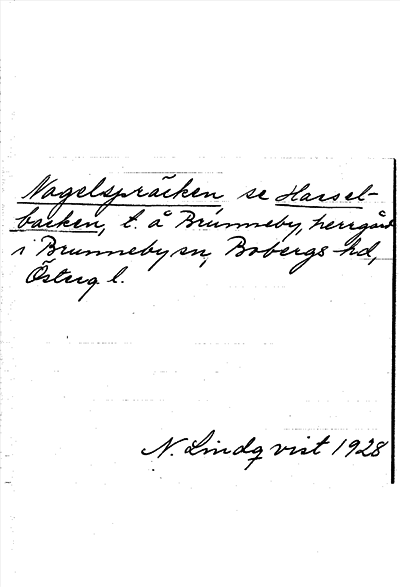 Nagelspräcken se Hassel-
backen, t. å Brunneby, herrgård
i Brunneby sn, Bobergs hd,
Österg l.
N. Lindqvist 1928